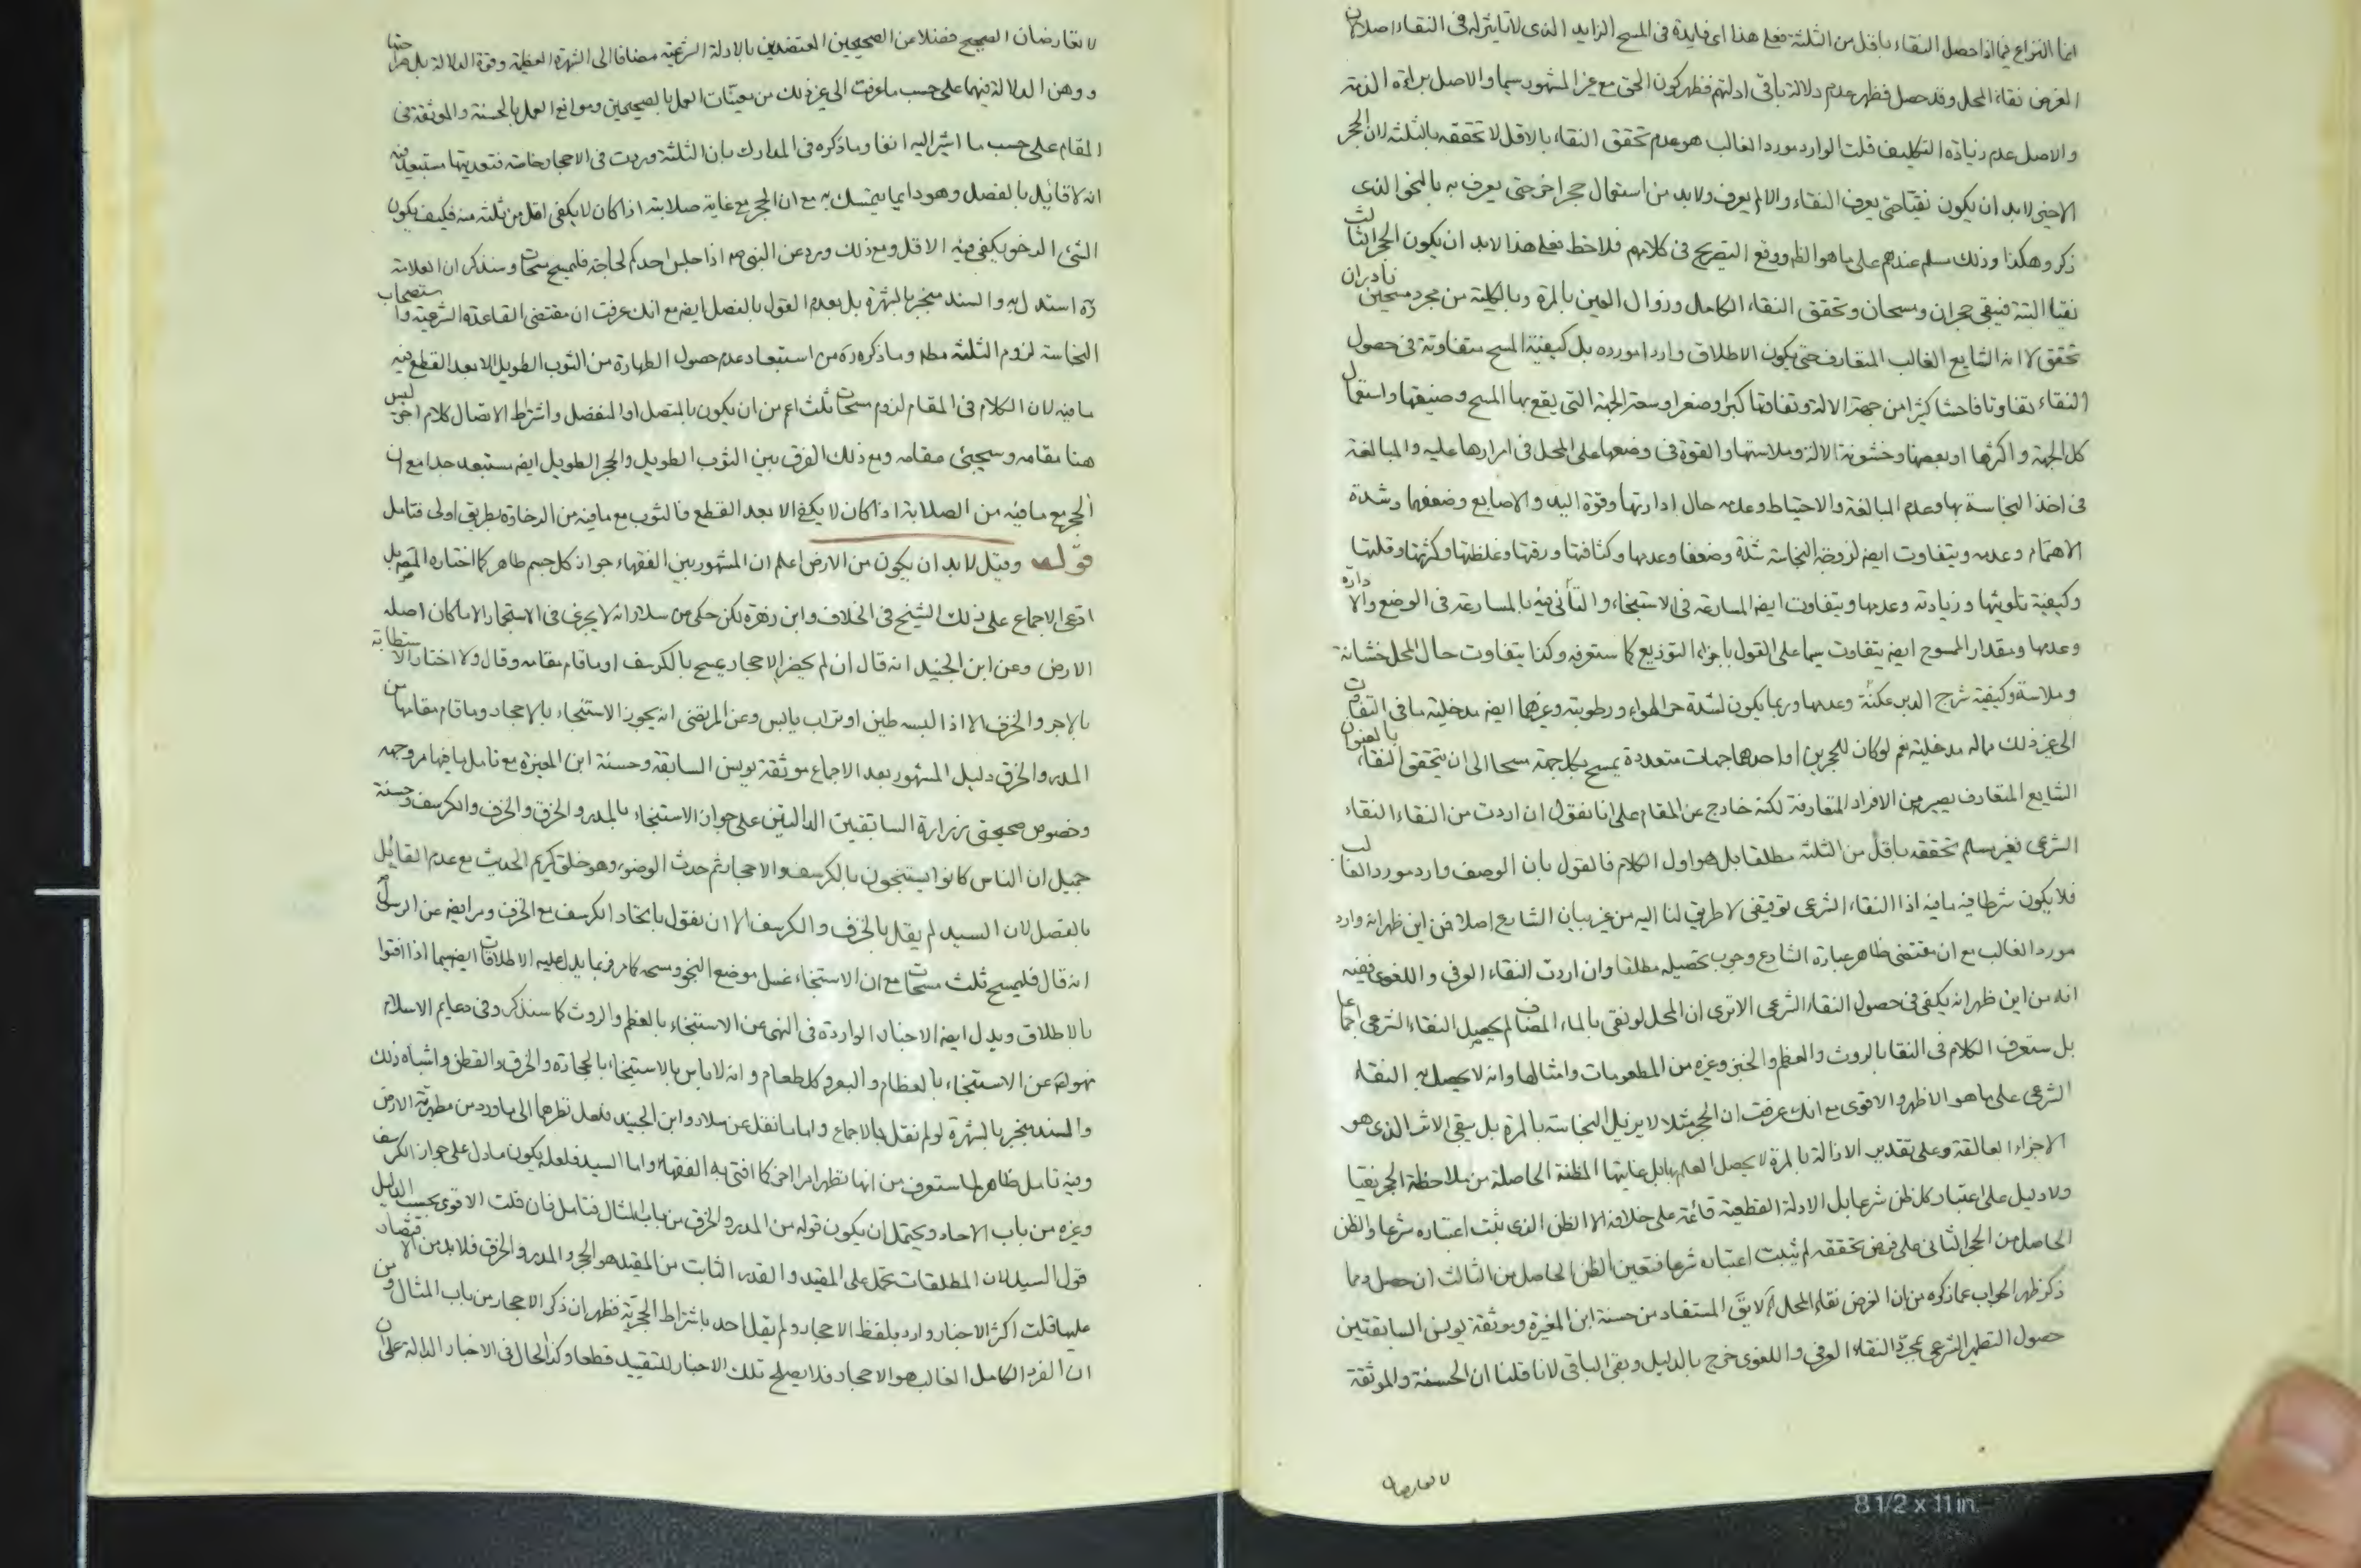 انما النزاع فيما اذا حصل النقاء باقل من الثلثة فعلى هذا اى فايدة فى المسح الزايد الذى لا تاثير له فى النقاء اصلا لان
الغرض نقاء المحل وقد حصل فظهر عدم دلالة باقى ادلتهم فظهر كون الحق مع غير المشهور سيما والاصل براءة الذمة
والاصل عدم زيادة التكليف قلت الوارد مورد الغالب هو عدم تحقق النقاء بالاقل لا تحققه بالثلثة لان الحجر
الاخير لابد ان يكون نقيا حتى يعرف النقاء والا لم يعرف ولابد من استعمال حجر اخر حتى يعرف به بالنحو الذى
ذكر وهكذا وذلك مسلم عندهم على ما هو الظ ووقع التصريح فى كلامهم فلاحظ فعلى هذا لابد ان يكون الحجر الثالث
نقيا البتة فيبقى حجران ومسحان وتحقق النقاء الكامل وزوال العين بالمرة وبالكلية من مجرد مسحين نادر ان
تحقق لا انه الشايع الغالب المتعارف حتى يكون الاطلاق واردا مورده بل كيفية المسح متفاوتة فى حصول
النقاء تفاوتا فاحشا كثيرا من جهة الالة وتفاوتها كبرا وصغرا وسعة الجهة التى يقع بها المسح وضيقها واستعمال
كل الجهة واكثرها او بعضها وخشونة الالة وملاستها والقوة فى وضعها على المحل فى امرارها عليه والمبالغة
فى اخذ النجاسة بها وعدم المبالغة والاحتياط وعدمه حال ادارتها وقوة اليد والاصابع وضعفهما وشدة
الاهتمام وعدمه ويتفاوت ايضه لزوجة النجاسة شدة وضعفا وعدمها وكثافتها ورقتها وغلظتها وكثرتها وقلتها
وكيفية تلويثها وزيادته وعدمها ويتفاوت ايضه المسارعة فى الاستنجاء والتأنى فيه بالمسارعة فى الوضع والادارة
وعدمها ومقدار الممسوح ايضه يتفاوت سيما على القول باجزاء التوزيع كما ستعرفه وكذا يتفاوت حال المحل خشانة
وملاسة وكيفية شرج الدبر عكنة وعدمها وربما يكون لشدة حر الهواء ورطوبته وغيرهما ايضه مدخلية ما فى التفاوت
الى غير ذلك مما له مدخلية نعم لو كان للحجرين او احدهما جهات متعددة يمسح بكل جهة مسحا الى ان يتحقق النقاء بالعنوان
الشايع المتعارف يصير من الافراد المتعارفة لكنه خارج عن المقام على انا نقول ان اردت من النقاء النقاء
الشرعى فغير مسلم تحققه باقل من الثلثة مطلقا بل هو اول الكلام فالقول بان الوصف وارد مورد الغالب
فلا يكون شرطا فيه ما فيه اذا النقاء الشرعى توقيفى لا طريق لنا اليه من غير بيان الشارع اصلا فمن اين ظهر انه وارد
مورد الغالب مع ان مقتضى ظاهر عبارة الشارع وجوب تحصيله مطلقا وان اردت النقاء العرفى واللغوى ففيه
انه من اين ظهر انه يكفى فى حصول النقاء الشرعى الاترى ان المحل لو نقى بالماء المضاف لم يحصل النقاء الشرعى اجماعا
بل ستعرف الكلام فى النقا بالروث والعظم والخبز وغيره من المطعومات وامثالها وانه لا يحصل به النقاء
الشرعى على ما هو الاظهر والاقوى مع انك عرفت ان الحجر مثلا لا يزيل النجاسة بالمرة بل يبقى الاثر الذى هو
الاجزاء العالقة وعلى تقدير الازالة بالمرة لا يحصل العلم بها بل غايتها المظنة الحاصلة من ملاحظة الحجر نقيا
ولا دليل على اعتبار كل ظن شرعا بل الادلة القطعية قائمة على خلافه الا الظن الذى ثبت اعتباره شرعا والظن
الحاصل من الحجر الثانى على فرض تحققه لم يثبت اعتباره شرعا فتعين الظن الحاصل من الثالث ان حصل ومما
ذكر ظهر الجواب عما ذكره من ان الغرض نقاء المحل لا يق المستفاد من حسنة ابن المغيرة وموثقة يونس السابقتين
حصول التطهر الشرعى بمجرد النقاء العرفى واللغوى خرج بالدليل وبقى الباقى لانا قلنا ان الحسنة والموثقة
لا تعارضان
لا تعارضان الصحيح فضلا عن الصحيحين المعتضدين بالادلة الشرعية مضافا الى الشهرة العظيمة وقوة الدلالة بل صراحتها
ووهن الدلالة فيهما على حسب ما عرفت الى غير ذلك من معينات العمل بالصحيحين وموانع العمل بالحسنة والموثقة فى
المقام على حسب ما اشير اليه انفا وما ذكره فى المدارك بان الثلثة وردت فى الاحجار خاصة فتعديتها مستبعد فيه
انه لا قائل بالفصل وهو دايما يتمسك به مع ان الحجر مع غاية صلابته اذا كان لا يكفى اقل من ثلثة منه فكيف يكون
الشئ الرخو يكفى فيه الاقل ومع ذلك ورد عن النبى صه اذا جلس احدكم لحاجة فليمسح مسحات وسنذكر ان العلامة
ره استدل به والسند منجبر بالشهرة بل بعدم القول بالفصل ايضه مع انك عرفت ان مقتضى القاعدة الشرعية واستصحاب
النجاسة لزوم الثلثة مطه وما ذكره ره من استبعاد عدم حصول الطهارة من الثوب الطويل الا بعد القطع فيه
ما فيه لان الكلام فى المقام لزوم مسحات ثلث اعم من ان يكون بالمتصل او المنفصل واشتراط الاتصال كلام اخر ليس
هنا مقامه وسيجيئ مقامه ومع ذلك الفرق بين الثوب الطويل والحجر الطويل ايضه مستبعد جدا مع ان
الحجر مع ما فيه من الصلابة اذا كان لا يكفى الا بعد القطع فالثوب مع ما فيه من الرخاوة بطريق اولى فتامل
قوله وقيل لابد ان يكون من الارض اعلم ان المشهور بين الفقهاء جواز كل جسم طاهر كما اختاره المصه بل
ادعى الاجماع على ذلك الشيخ فى الخلاف وابن زهرة لكن حكى من سلار انه لا يجزى فى الاستجمار الا ما كان اصله
الارض وعن ابن الجنيد انه قال ان لم يحضر الاحجار يمسح بالكرسف او ما قام مقامه وقال ولا اختار الاستطابة
بالاجر والخزف الا اذا البسه طين او تراب يابس وعن المرتضى انه يجوز الاستنجاء بالاحجار وما قام مقامها من
المدر والخرق دليل المشهور بعد الاجماع موثقة يونس السابقة وحسنة ابن المغيرة مع تامل ما فيها مر وجهه
وخصوص صحيحتى زرارة السابقتين الدالتين على جواز الاستنجاء بالمدر والخرق والخزف والكرسف وحسنة
جميل ان الناس كانوا يستنجون بالكرسف والاحجار ثم حدث الوضوء وهو خلق كريم الحديث مع عدم القائل
بالفصل لان السيد لم يقل بالخزف والكرسف الا ان نقول باتحاد الكرسف مع الخرق ومر ايضه عن الرسول ص
انه قال فليمسح ثلث مسحات مع ان الاستنجاء غسل موضع النجو ومسحه كما مر فربما يدل عليه الاطلاقات ايضه سيما اذا افتوا
بالاطلاق ويدل ايضه الاخبار الواردة فى النهى عن الاستنجاء بالعظم والروث كما سنذكر وفى دعايم الاسلام
نهوا عن الاستنجاء بالعظام والبعر وكل طعام وانه لا باس بالاستنجاء بالحجارة والخرق والقطن واشباه ذلك
والسند منجبر بالشهرة لو لم نقل بالاجماع واما ما نقل عن سلار وابن الجنيد فلعل نظرهما الى ما ورد من مطهرية الارض
وفيه تامل ظاهر لما ستعرف من انها تطهر امرا اخر كما افتى به الفقهاء واما السيد فلعله يكون ما دل على جواز الكرسف
وغيره من باب الاحاد ويحتمل ان يكون قوله من المدر والخرق من باب المثال فتامل فان قلت الاقوى بحسب الدليل
قول السيد لان المطلقات تحمل على المقيد والقدر الثابت من المقيد هو الحجر والمدر والخرق فلابد من الاقتصاد
عليها قلت اكثر الاخبار وارد بلفظ الاحجار ولم يقل احد باشتراط الحجرية فظهر ان ذكر الاحجار من باب المثال ومن
ان الفرد الكامل الغالب هو الاحجار فلا يصلح تلك الاخبار للتقييد قطعا وكذا الحال فى الاخبار الدالة على ان
8 1/2 x 11 in.